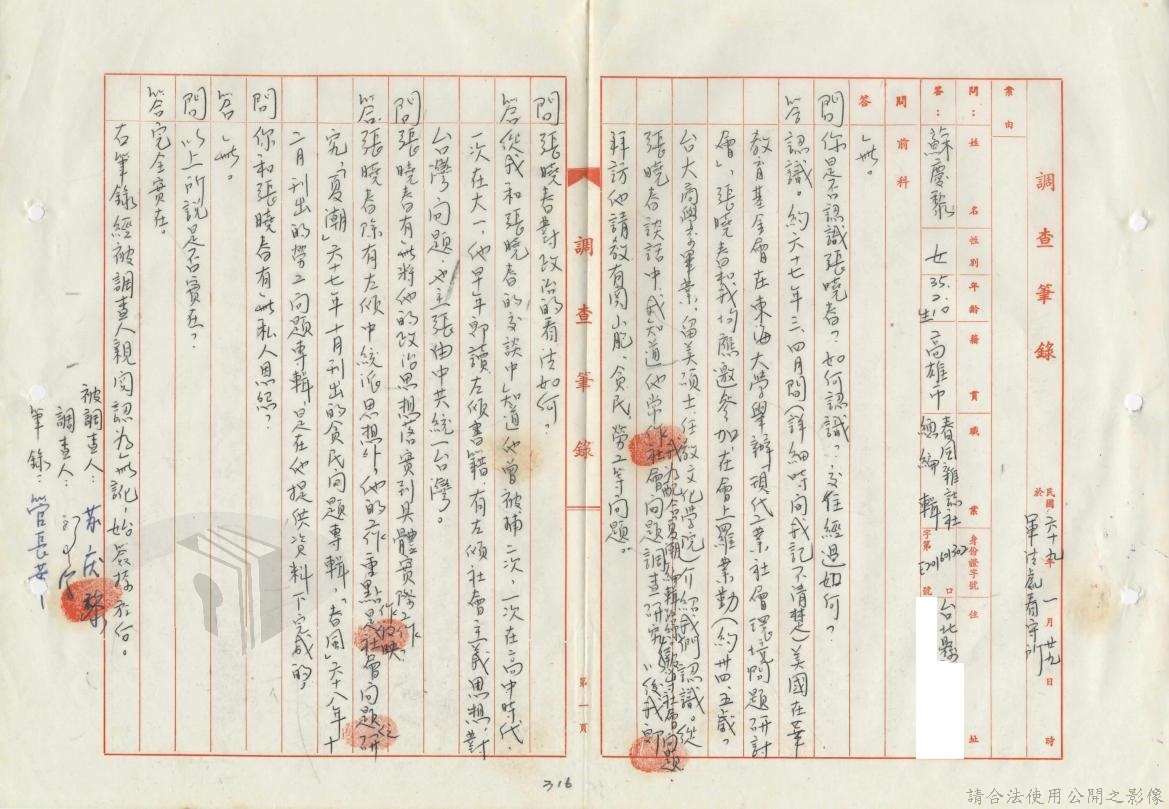 調查筆錄
民國六十九年一月廿九日 時
於軍法處看守所
案由
問:姓名 性別 年齡 籍貫 職業 身份證字號 住址
答:蘇慶黎 女 35.2.10生 高雄中 春風雜誌社總編輯 字第 號 台北縣
問 前科
答 無。
問 你是否認識張曉春?如何認識?交往經過如何?
答 認識。約六十七年三、四月間(詳細時間我記不清楚)美國在華
教育基金會在東海大學舉辦「現代工業社會環境問題研討
會」,張曉春和我均應邀參加,在會上羅業勤(約卅四五歲,
台大商學系畢業,留美碩士,任教文化學院)介紹我們認識。從
張曉春談話中,我知道他常作社會問題調查研究,以後我即
我為配合夏潮編輯社會問題
拜訪他請教有關小肥、貧民、勞工等問題。
調查筆錄
第一頁
問 張曉春對政治的看法如何?
答 從我和張曉春的交談中,知道他曾被捕二次,一次在高中時代,
一次在大一,他早年即讀左傾書籍,有左傾社會主義思想,對
台灣問題也主張由中共統一台灣。
問 張曉春有無將他的政治思想落實到具體實際工作
答 張曉春除有左傾中統派思想外,他的工作重點是社會問題研
究,「夏潮」六十七年十月刊出的貧民問題專輯,「春風」六十八年十
二月刊出的勞工問題專輯,是在他提供資料下完成的,
問 你和張曉春有無私人恩怨?
答 無。
問 以上所說是否實在?
答 完全實在。
右筆錄經被調查人親閱認為無訛,始簽捺於后。
被調查人:蘇慶黎
調查人:
筆錄:管長
316
請合法使用公開之影像